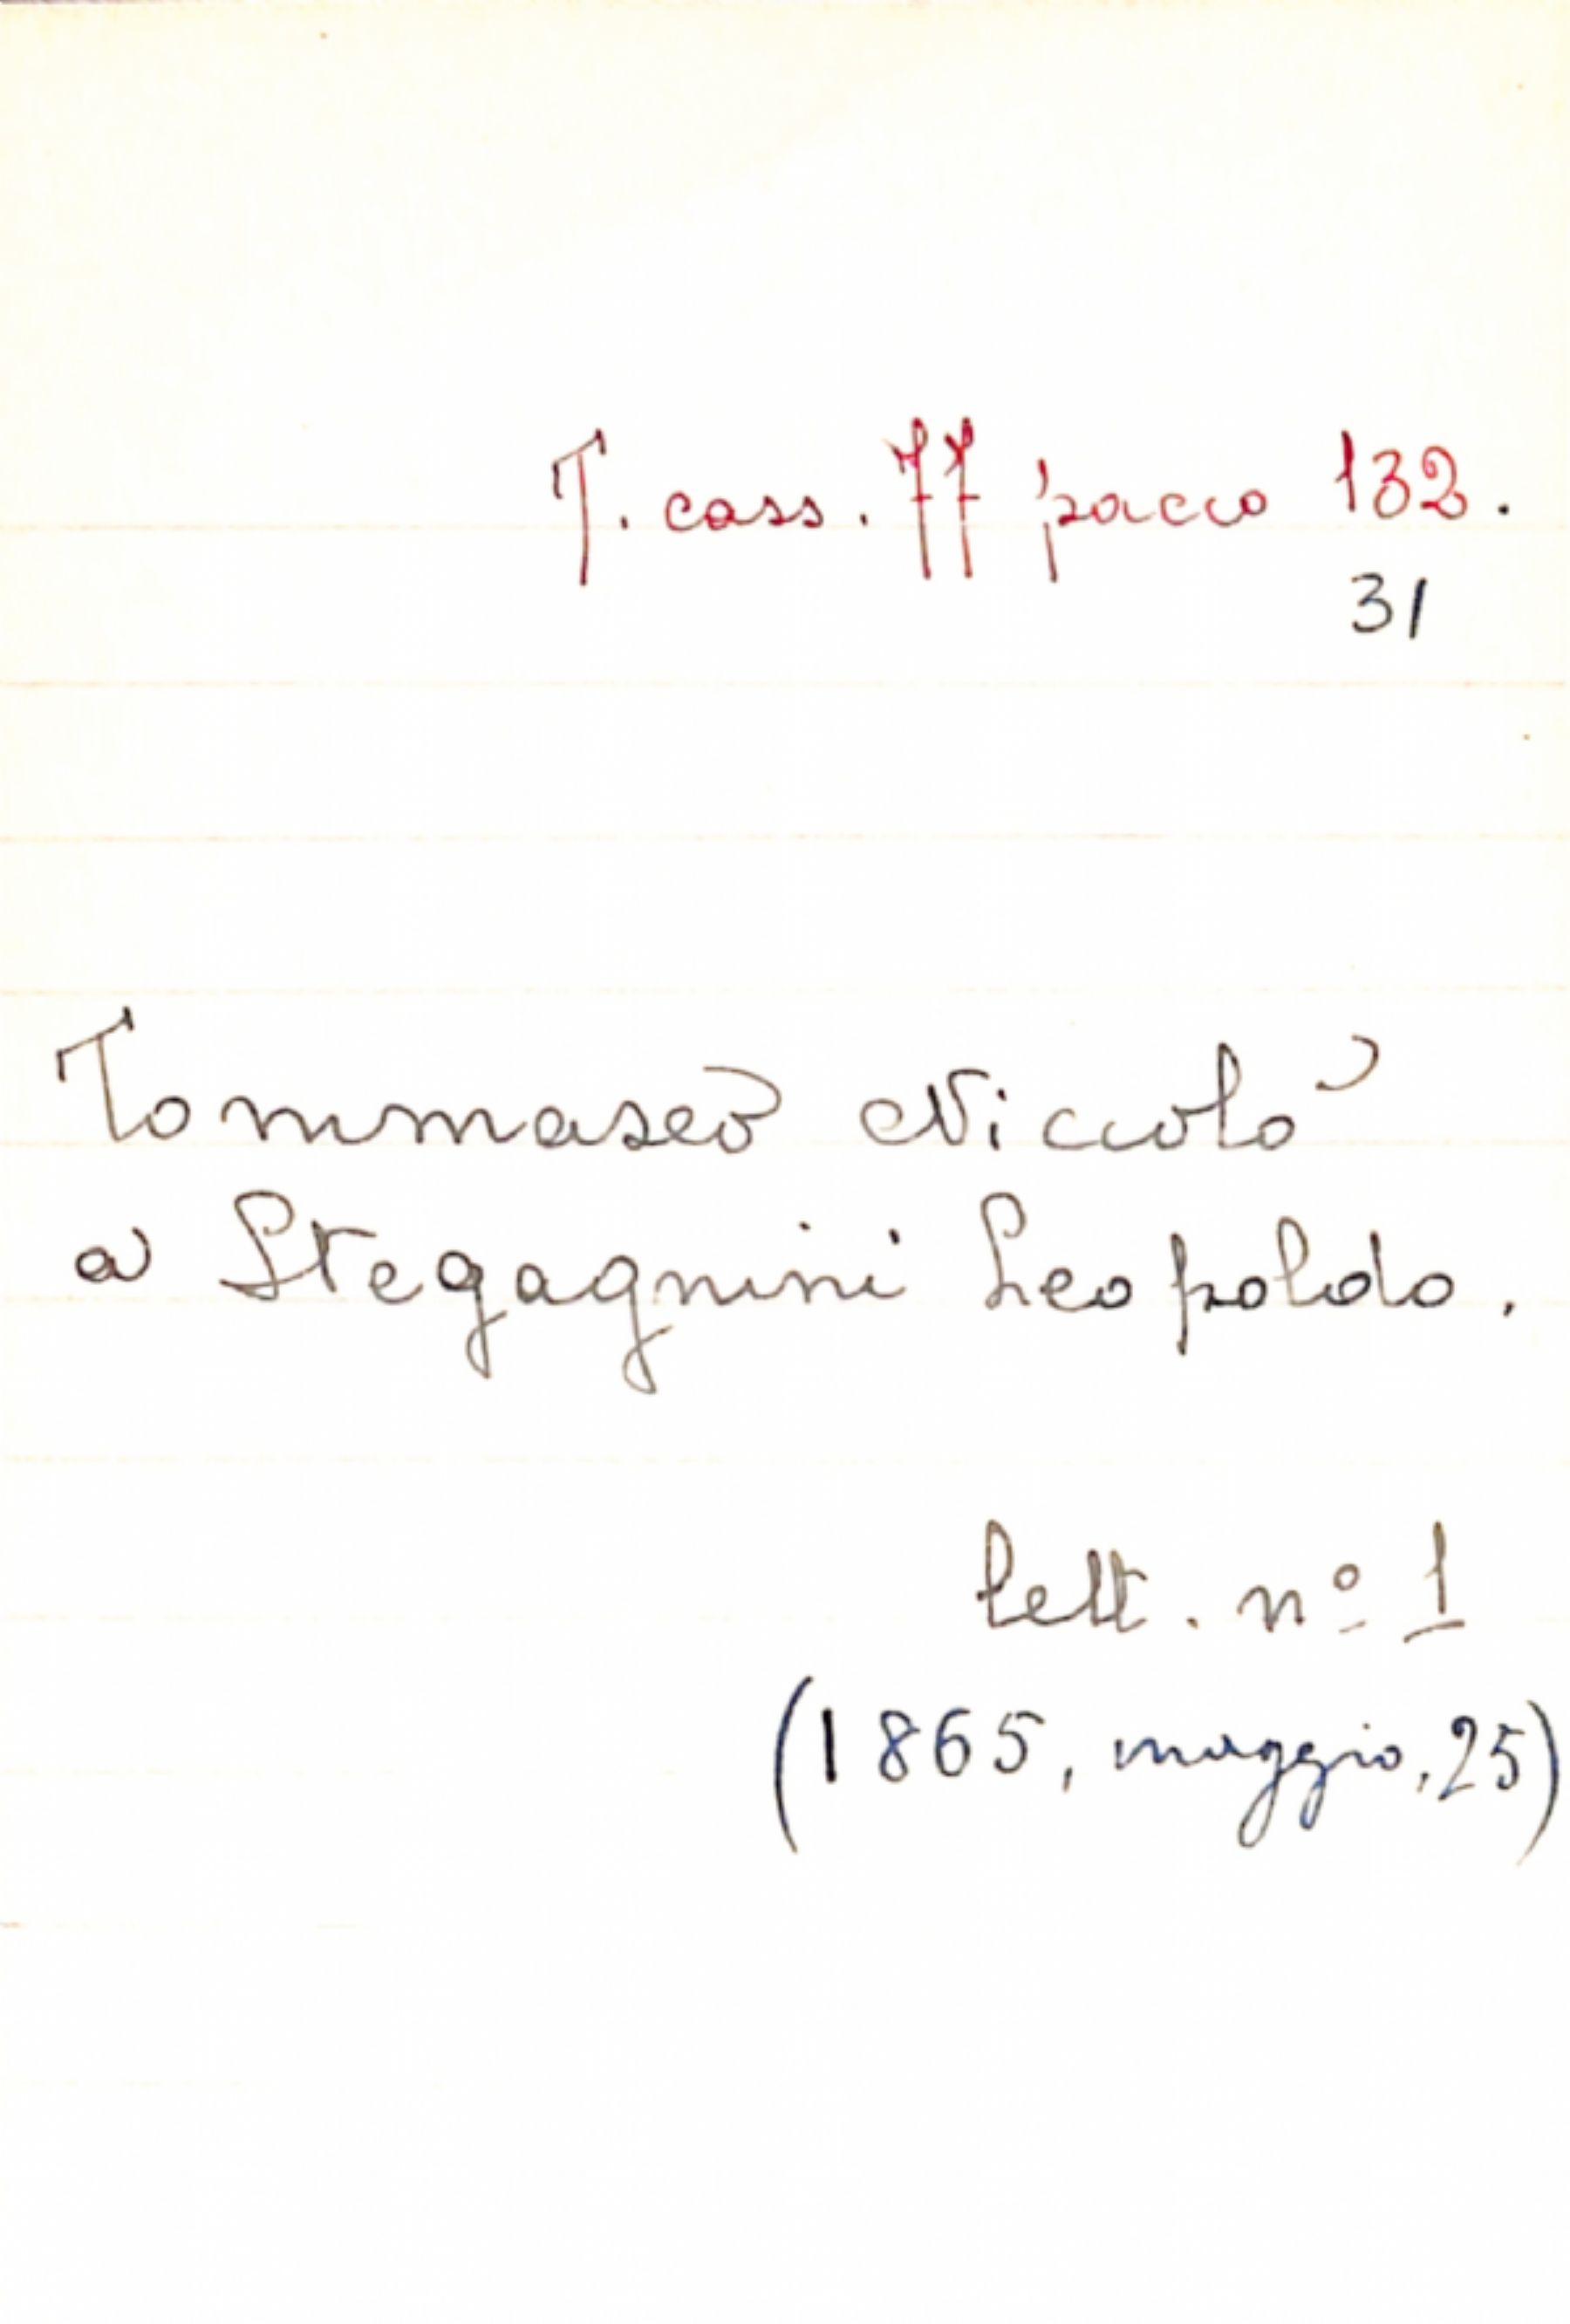 T. cass. 77 pacco 132.
31
Tommaseò Niccolò
a Stegagnini Leopoldo.
lett. nº 1
(1865, maggio, 25)